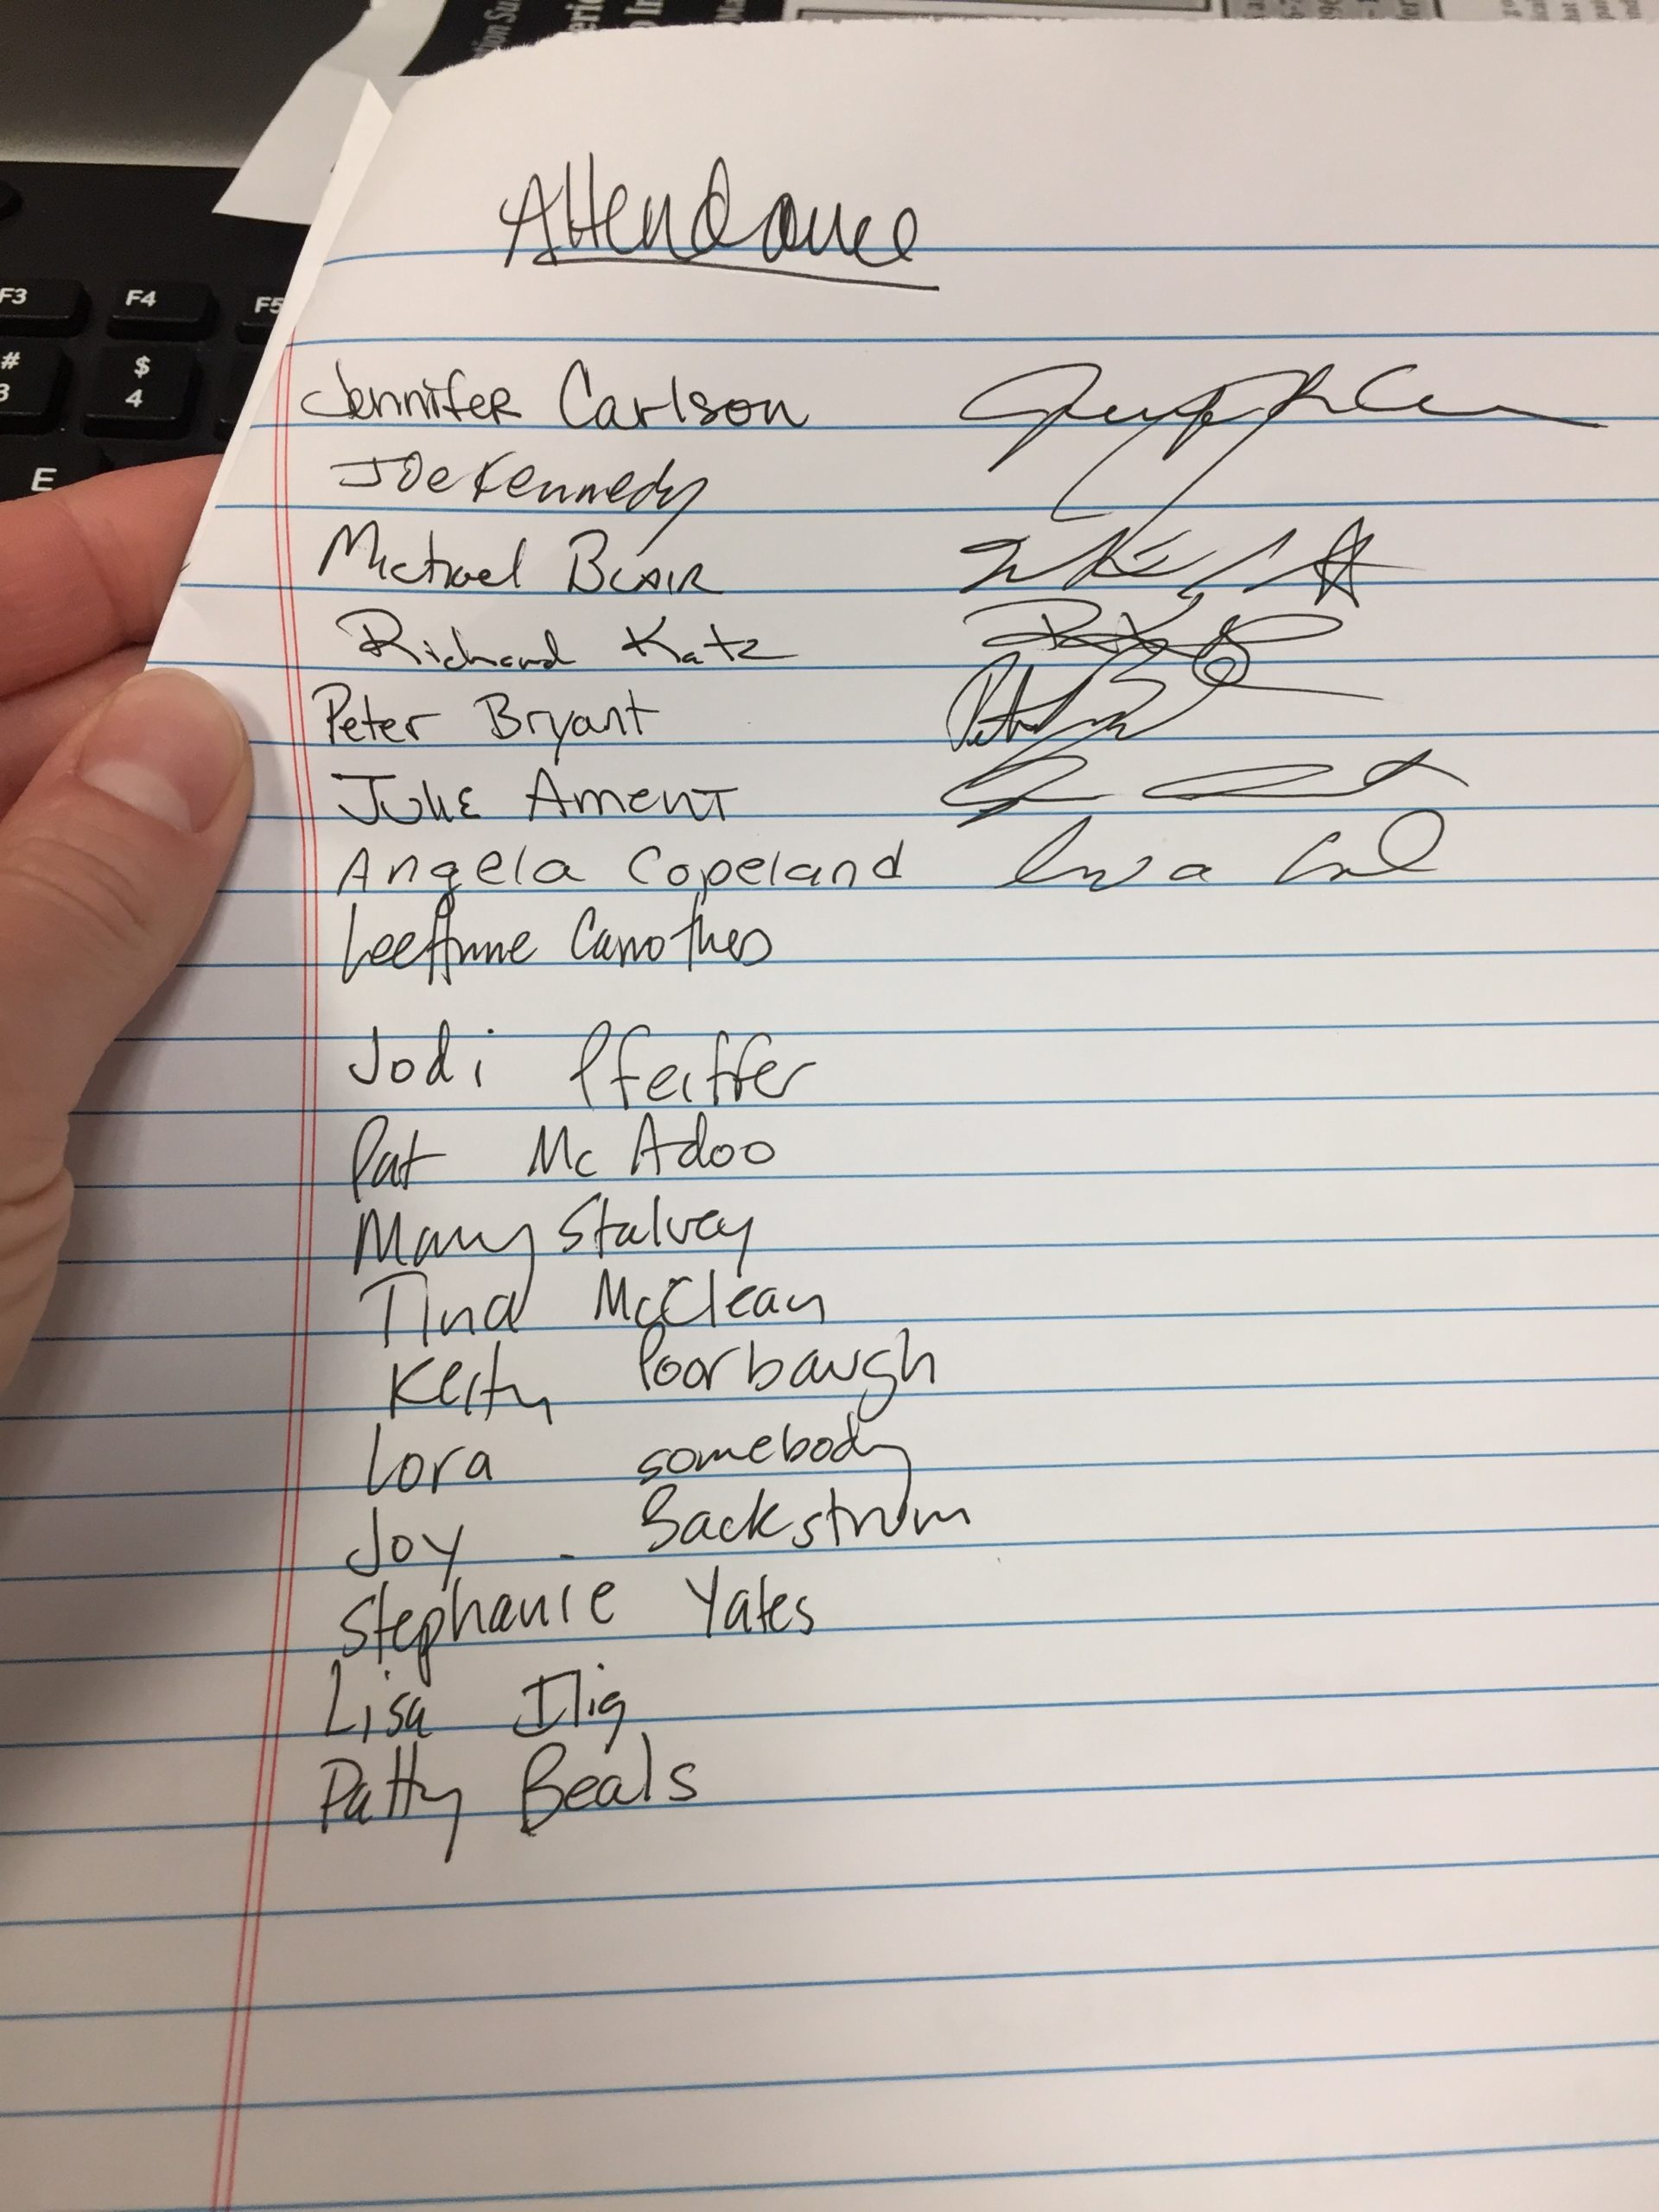 Attendance
Jennifer Carlson
Joe Kennedy
Michael Blair
Richard Katz
Peter Bryant
Julie Ament
Angela Copeland
LeeAnne Carrothers
Jodi Pfeiffer
Pat McAdoo
Mary Stalvey
Tina McClean
Keith Poorbaugh
Lora somebody
Joy - Backstrum
Stephanie Yates
Lisa Ilig
Patty Beals
F3 F4 F5
# 3 $ 4
E